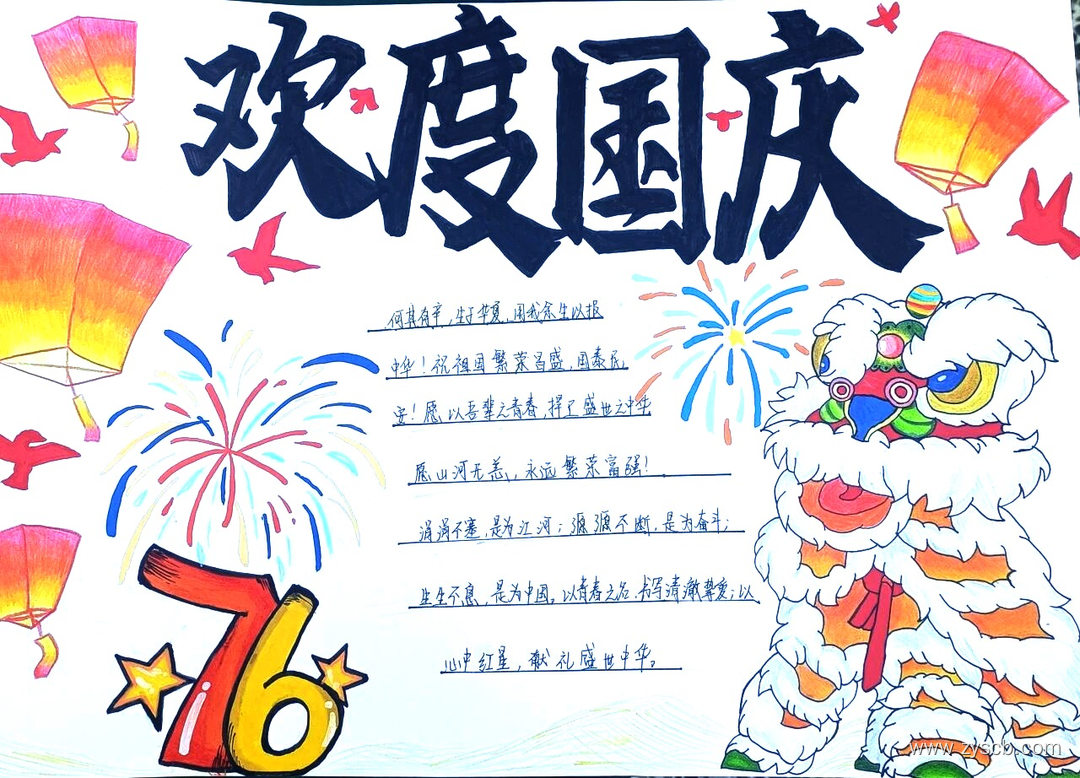 欢度国庆
何其有幸,生于华夏,用我余生以报
中华!祝祖国繁荣昌盛,国泰民
安!愿以吾辈之青春,捍了盛世之中华
愿山河无恙,永远繁荣富强!
涓涓不塞,是为江河;源源不断,是为奋斗;
生生不息,是为中国。以青春之名,书写清澈挚爱;以
心中红星,献礼盛世中华。
76
www.zyscb.com